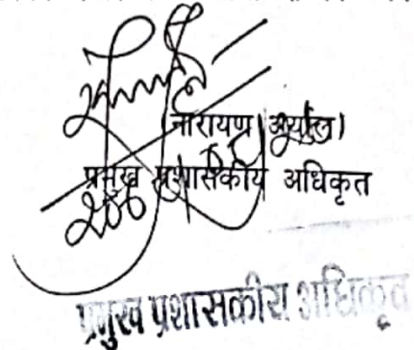 (नारायण अर्याल)
प्रमुख प्रशासकीय अधिकृत
प्रमुख प्रशासकीय अधिकृत